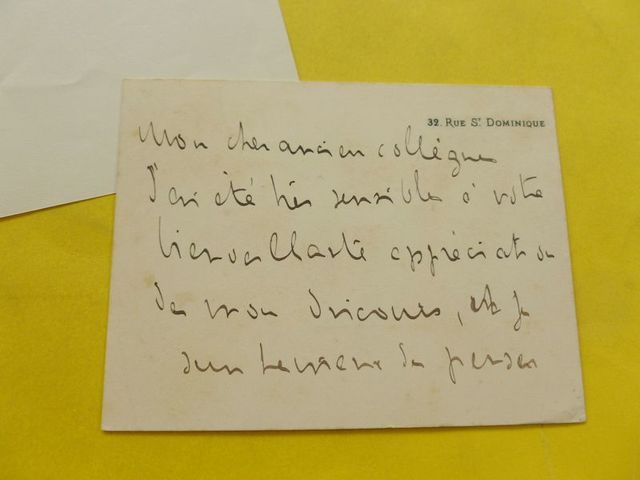 32. RUE ST DOMINIQUE
Mon cher ancien collègue
J'ai été très sensible à votre
bienveillante appréciation
de mon discours, et je
suis heureux de penser